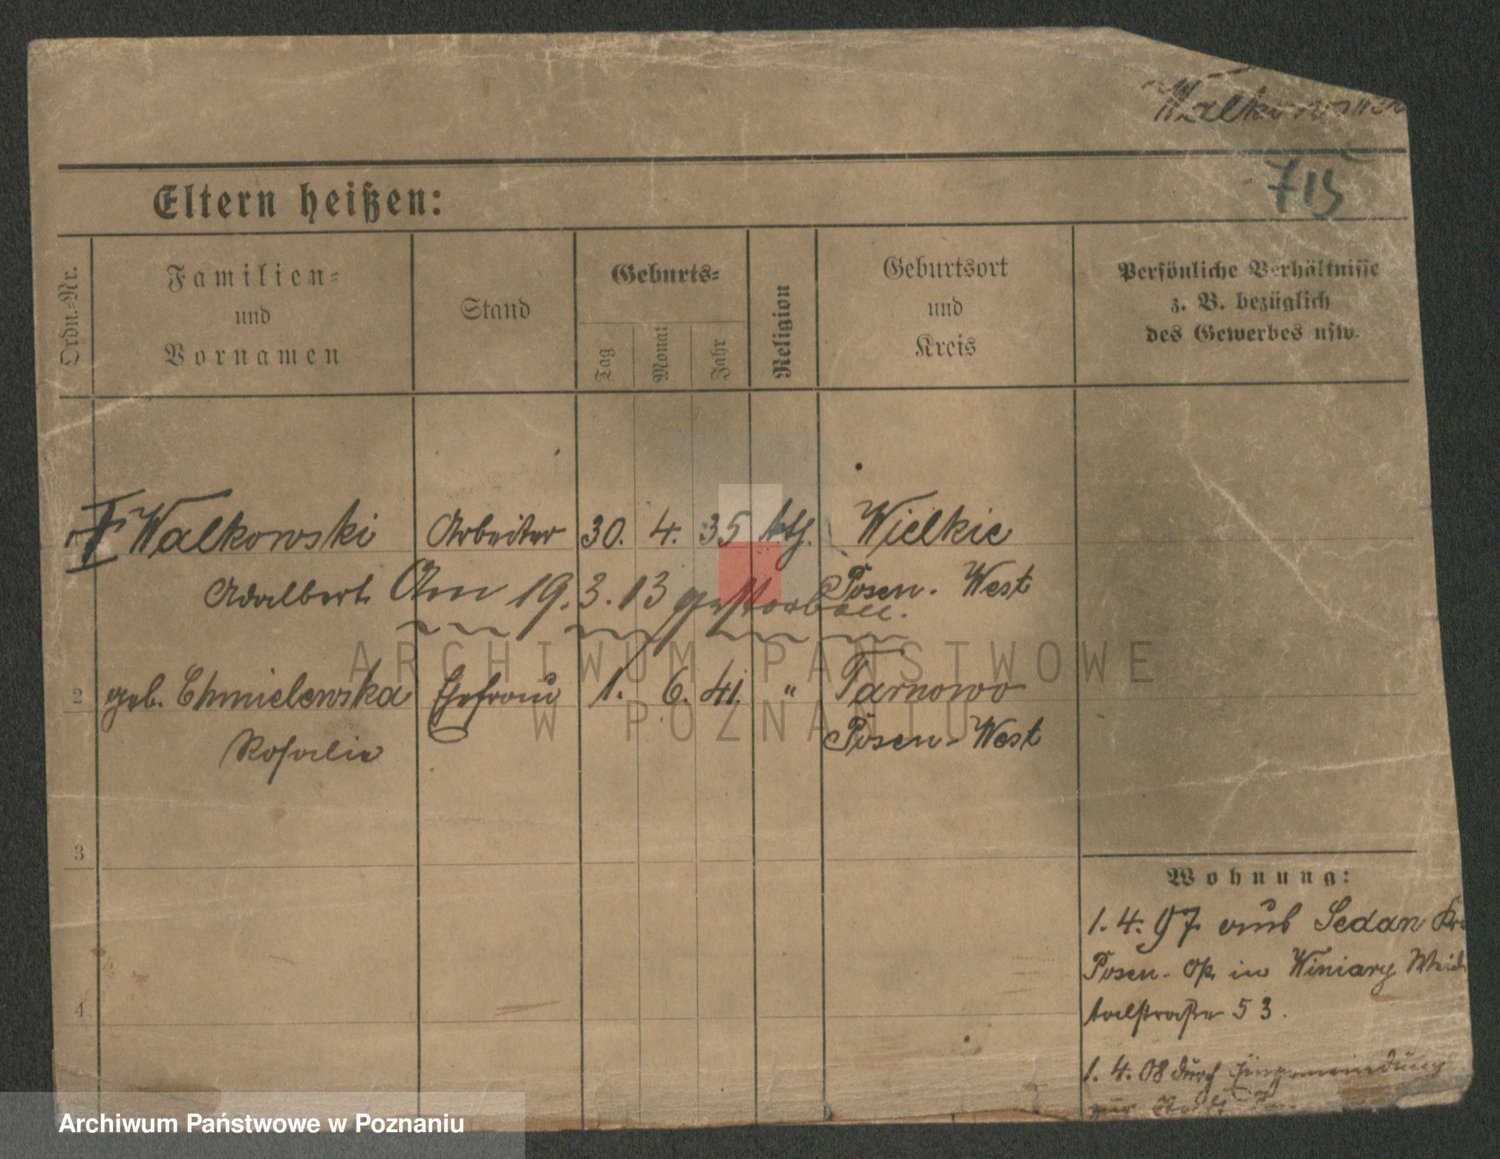 Walkowski
715
Eltern heißen:
Ordn.-Nr.
Familien-
und
Vornamen
Stand
Geburts-
Tag
Monat
Jahr
Religion
Geburtsort
und
Kreis
Persönliche Verhältnisse
z. B. bezüglich
des Gewerbes usw.
Walkowski Arbeiter 30. 4. 35 kth. Wielkie
Adalbert Am 19.3.13 gestorben. Posen-West
2 geb. Chmielewska Ehefrau 1. 6. 41. " Tarnowo
Rosalie Posen-West
3
4
Wohnung:
1. 4. 97 aus Sedan
Posen-Ost in Winiary
talstraße 53.
1. 4. 08 durch Eingemeindung
zur Stadt
ARCHIWUM PAŃSTWOWE
W POZNANIU
Archiwum Państwowe w Poznaniu